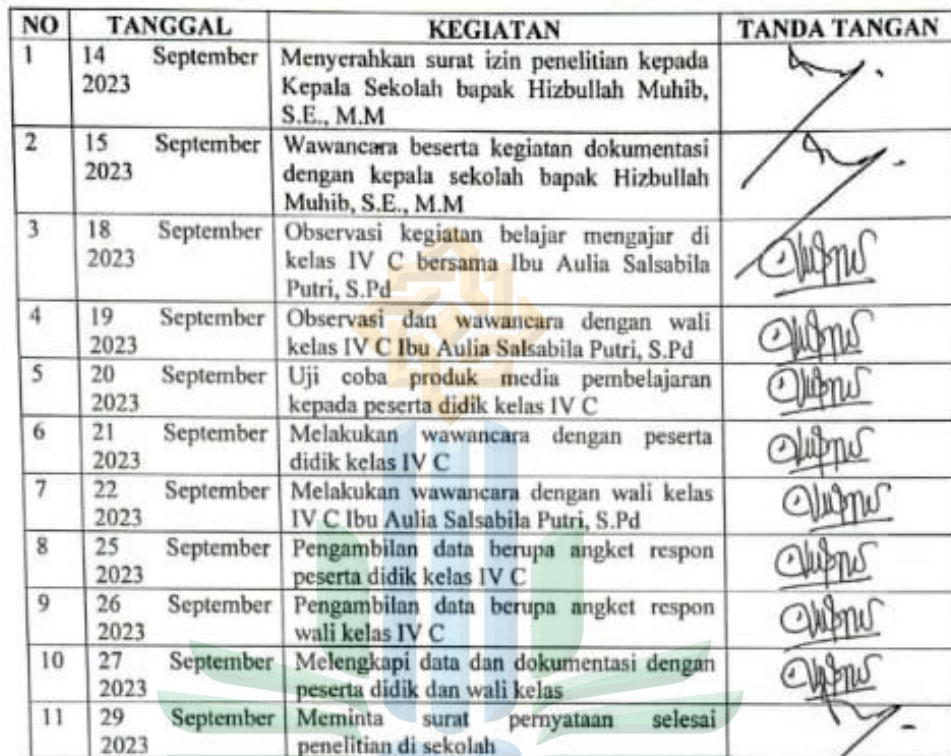 NO TANGGAL KEGIATAN TANDA TANGAN
1 14 September Menyerahkan surat izin penelitian kepada
2023 Kepala Sekolah bapak Hizbullah Muhib,
S.E., M.M
2 15 September Wawancara beserta kegiatan dokumentasi
2023 dengan kepala sekolah bapak Hizbullah
Muhib, S.E., M.M
3 18 September Observasi kegiatan belajar mengajar di
2023 kelas IV C bersama Ibu Aulia Salsabila
Putri, S.Pd
4 19 September Observasi dan wawancara dengan wali
2023 kelas IV C Ibu Aulia Salsabila Putri, S.Pd
5 20 September Uji coba produk media pembelajaran
2023 kepada peserta didik kelas IV C
6 21 September Melakukan wawancara dengan peserta
2023 didik kelas IV C
7 22 September Melakukan wawancara dengan wali kelas
2023 IV C Ibu Aulia Salsabila Putri, S.Pd
8 25 September Pengambilan data berupa angket respon
2023 peserta didik kelas IV C
9 26 September Pengambilan data berupa angket respon
2023 wali kelas IV C
10 27 September Melengkapi data dan dokumentasi dengan
2023 peserta didik dan wali kelas
11 29 September Meminta surat pernyataan selesai
2023 penelitian di sekolah